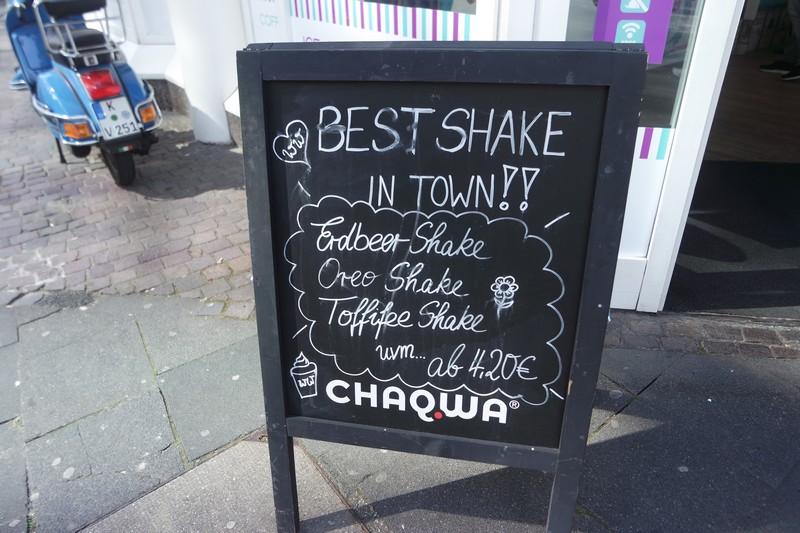 BEST SHAKE
IN TOWN!!
Erdbeer Shake
Oreo Shake
Toffifee Shake
uvm...
ab 4.20€
CHAQWA®
K
V 251
COFF